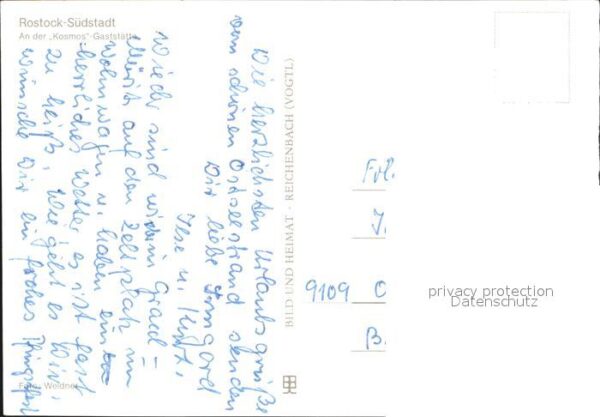 Rostock-Südstadt
An der „Kosmos"-Gaststätte
Die herzlichsten Urlaubsgrüße
vom schönen Ostseestrand senden
Dir liebe Irmgard
Ilse u. Kurt.
Wieder sind wir in Graal=
Müritz auf den Zeltplatz im
Wohnwagen u. haben ein
herrliches Wetter es ist fast
zu heiß. Wie geht es Dir,
wünsche Dir ein frohes Pfingstfest
BILD UND HEIMAT · REICHENBACH (VOGTL)
Frl.
I.
9109 O
B.
privacy protection
Datenschutz
Foto: Weidner